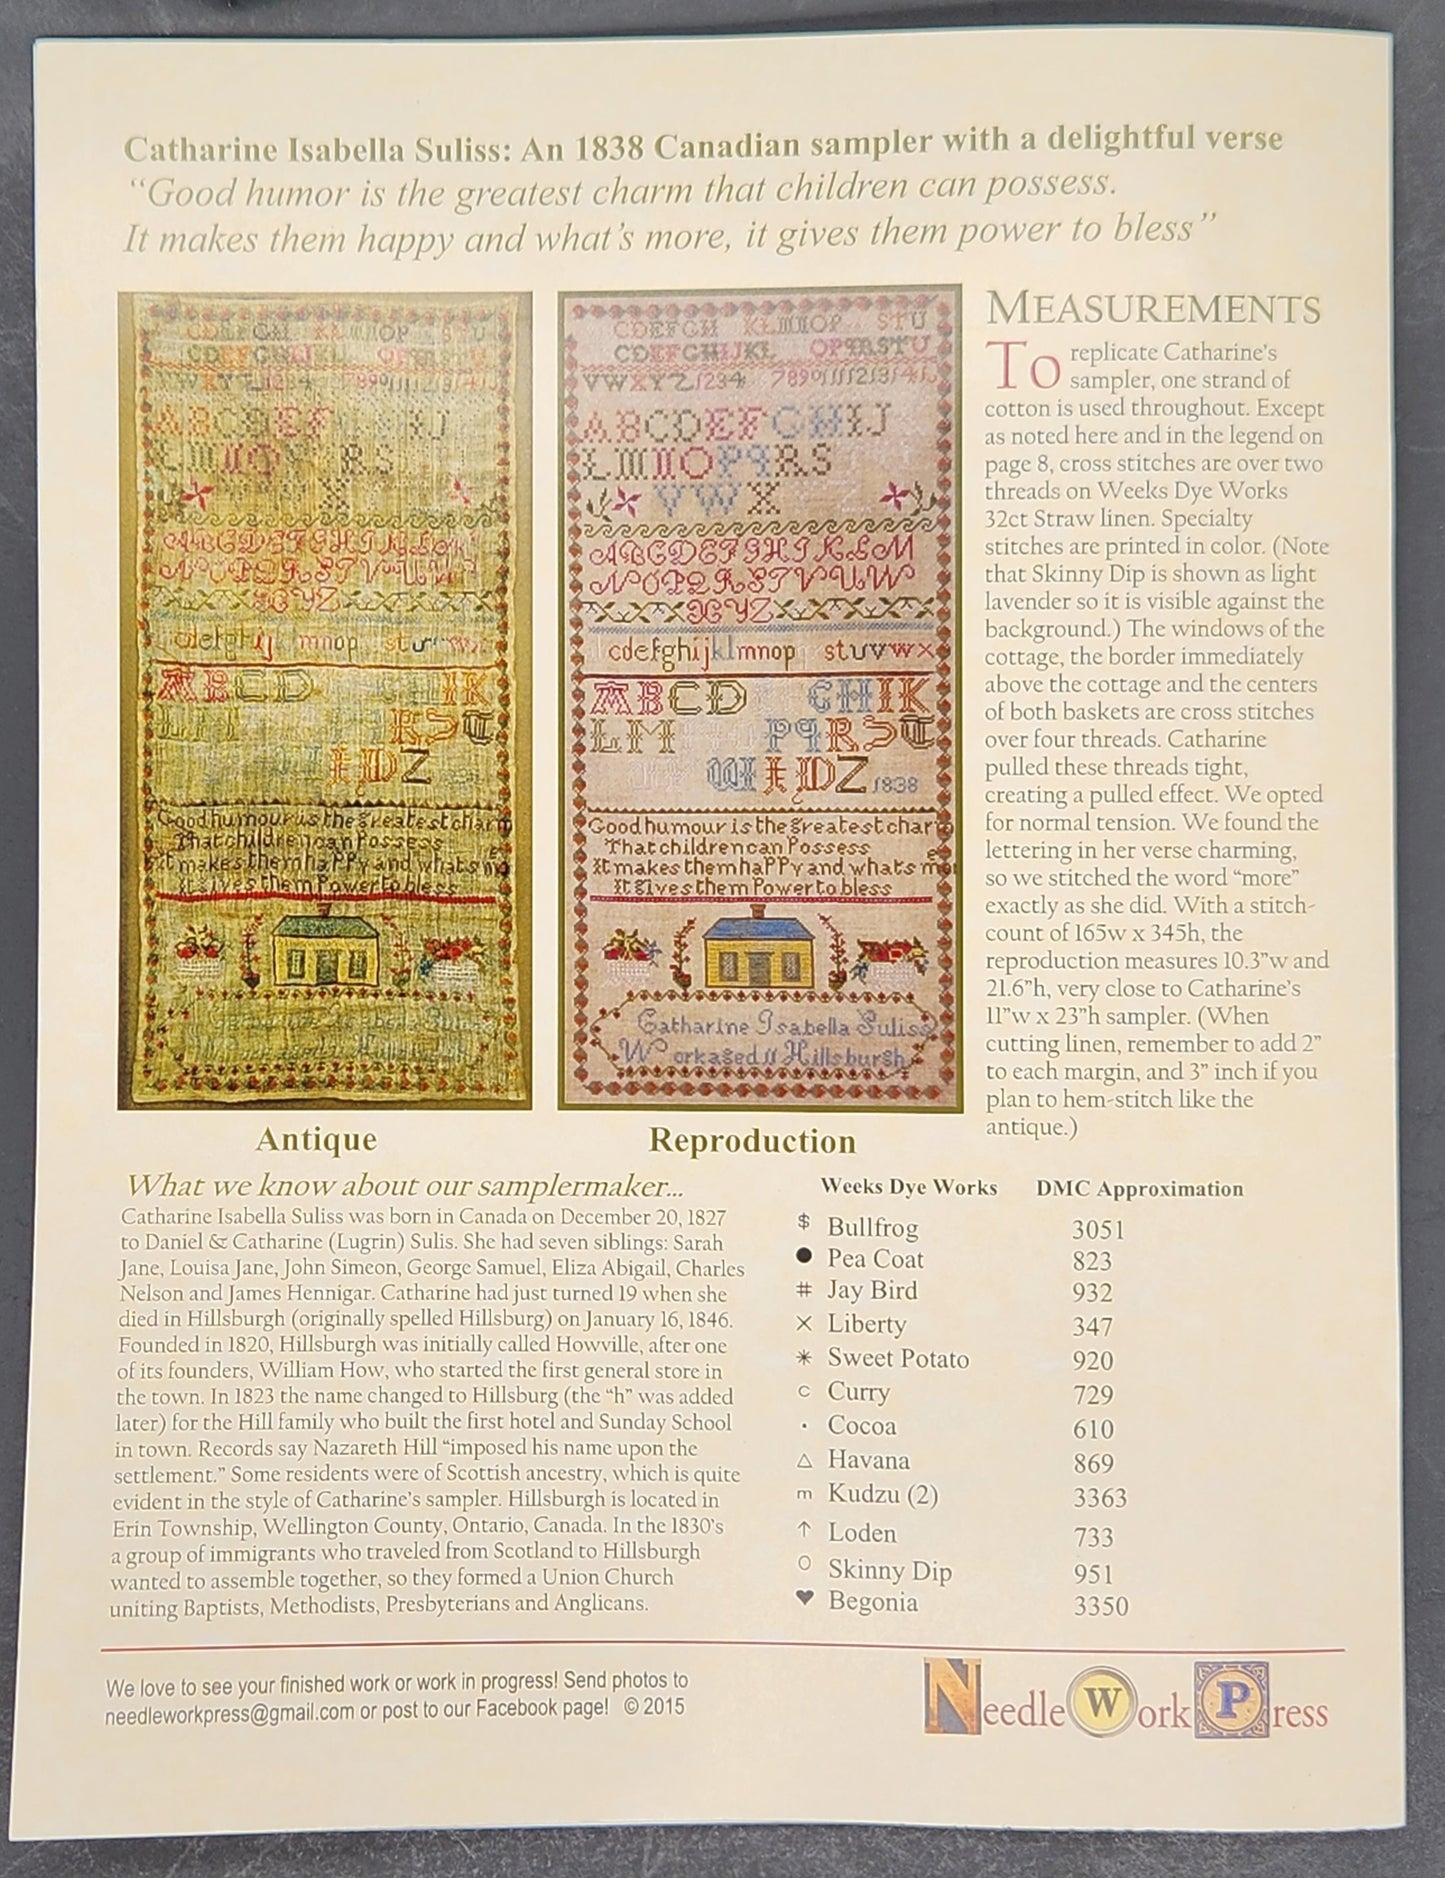 Catharine Isabella Suliss: An 1838 Canadian sampler with a delightful verse
“Good humor is the greatest charm that children can possess.
It makes them happy and what’s more, it gives them power to bless”
CDEFGH KLMNOP STU
CDEFGHIJKL OPQRSTU
VWXYZ1234 789
ABCDEFGHIJ
LMNOPQRS
VWX
ABCDEFGHIJKLM
NOPQRSTVUW
XYZ
cdefghijklmnop stuvwx
ABCD GHIK
LM PQRST
WZ 1838
Goodhumour is the greatest charm
That children can Possess
It makes them haPPy and whats more
It gives them Power to bless
Catharine Isabella Suliss
Workased 11 Hillsburgh
Antique
Reproduction
MEASUREMENTS
To replicate Catharine’s
sampler, one strand of
cotton is used throughout. Except
as noted here and in the legend on
page 8, cross stitches are over two
threads on Weeks Dye Works
32ct Straw linen. Specialty
stitches are printed in color. (Note
that Skinny Dip is shown as light
lavender so it is visible against the
background.) The windows of the
cottage, the border immediately
above the cottage and the centers
of both baskets are cross stitches
over four threads. Catharine
pulled these threads tight,
creating a pulled effect. We opted
for normal tension. We found the
lettering in her verse charming,
so we stitched the word “more”
exactly as she did. With a stitch-
count of 165w x 345h, the
reproduction measures 10.3”w and
21.6”h, very close to Catharine’s
11”w x 23”h sampler. (When
cutting linen, remember to add 2”
to each margin, and 3” inch if you
plan to hem-stitch like the
antique.)
What we know about our samplermaker...
Catharine Isabella Suliss was born in Canada on December 20, 1827
to Daniel & Catharine (Lugrin) Sulis. She had seven siblings: Sarah
Jane, Louisa Jane, John Simeon, George Samuel, Eliza Abigail, Charles
Nelson and James Hennigar. Catharine had just turned 19 when she
died in Hillsburgh (originally spelled Hillsburg) on January 16, 1846.
Founded in 1820, Hillsburgh was initially called Howville, after one
of its founders, William How, who started the first general store in
the town. In 1823 the name changed to Hillsburg (the “h” was added
later) for the Hill family who built the first hotel and Sunday School
in town. Records say Nazareth Hill “imposed his name upon the
settlement.” Some residents were of Scottish ancestry, which is quite
evident in the style of Catharine’s sampler. Hillsburgh is located in
Erin Township, Wellington County, Ontario, Canada. In the 1830’s
a group of immigrants who traveled from Scotland to Hillsburgh
wanted to assemble together, so they formed a Union Church
uniting Baptists, Methodists, Presbyterians and Anglicans.
Weeks Dye Works DMC Approximation
$ Bullfrog 3051
● Pea Coat 823
# Jay Bird 932
× Liberty 347
✳ Sweet Potato 920
c Curry 729
· Cocoa 610
△ Havana 869
m Kudzu (2) 3363
↑ Loden 733
○ Skinny Dip 951
♥ Begonia 3350
We love to see your finished work or work in progress! Send photos to
needleworkpress@gmail.com or post to our Facebook page! © 2015
NeedleWorkPress